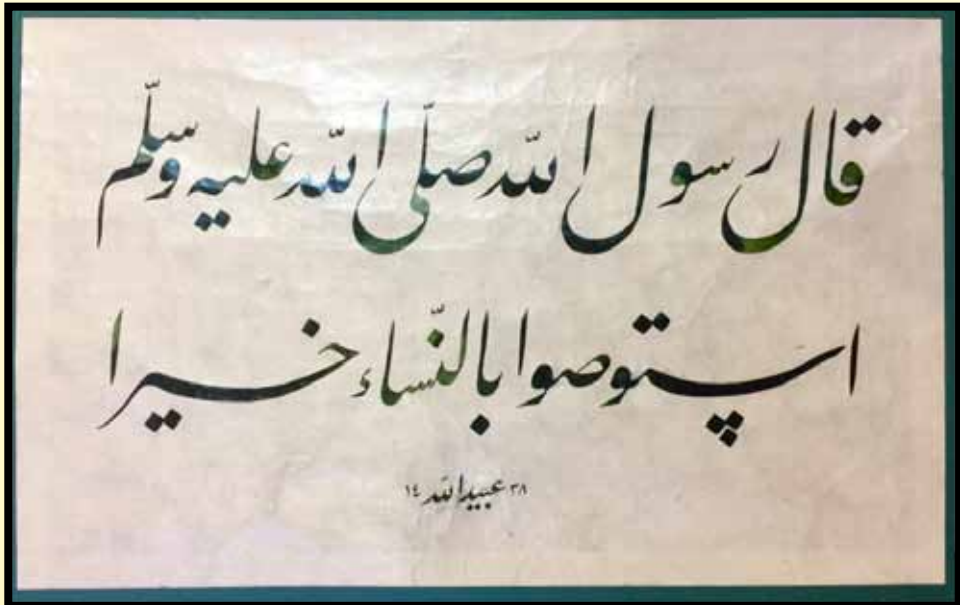 قال رسول الله صلّى الله عليه وسلّم
استوصوا بالنّساء خيرا
٣٨ عبيد الله ١٤